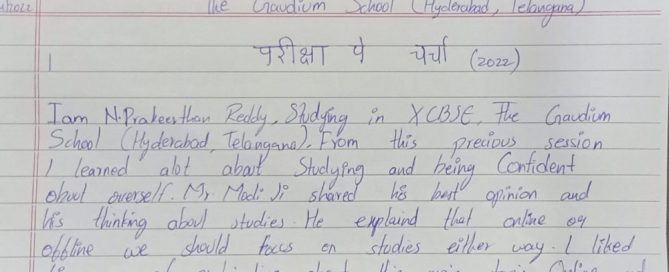 2022 The Gaudium School (Hyderabad, Telangana)
परीक्षा पे चर्चा (2022)
I am N. Prakeerthan Reddy, Studying in X CBSE, The Gaudium
School (Hyderabad, Telangana). From this precious session
I learned alot about Studying and being Confident
about overself. Mr. Modi Ji shared his best opinion and
his thinking about studies. He explaind that online or
offline we should focus on studies either way. I liked